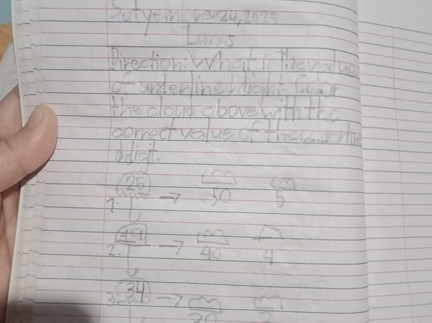 24, 2025
Lunes
Direction: What is the value
of underlined digit. Color
the cloud above with the
correct value of the underline
ddigit.
1. 25 → 50 5
2. → 40 4
3. 34 → 30 3